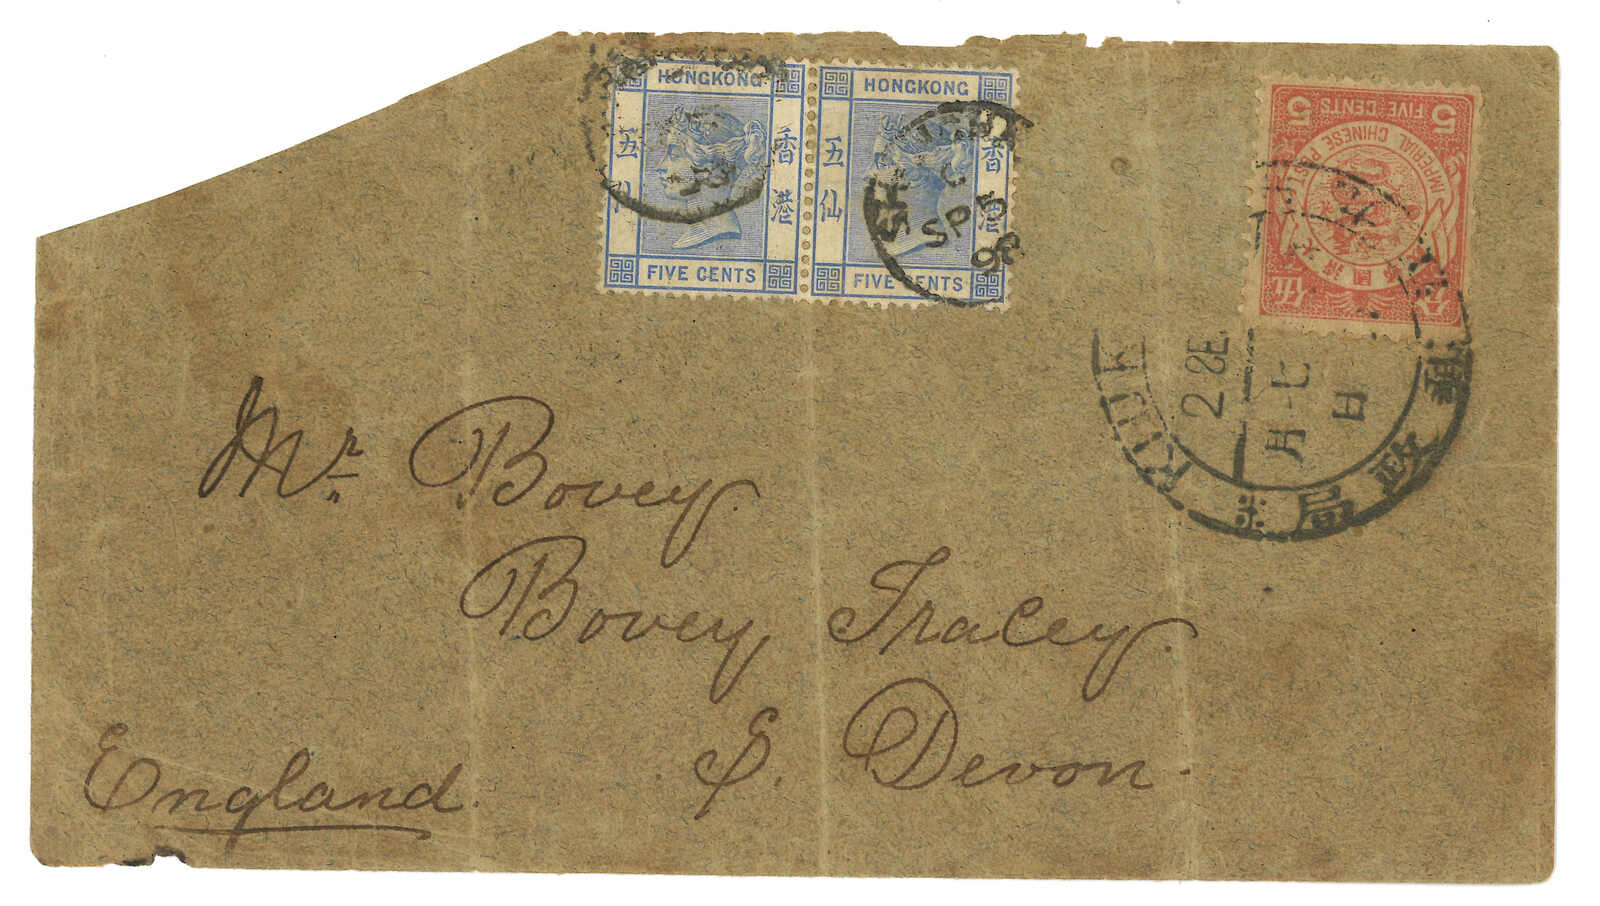 HONGKONG
五
香港
FIVE CENTS
HONGKONG
五仙
香港
FIVE CENTS
C
SP 5
98
5 FIVE CENTS 5
IMPERIAL CHINESE
伍
分
KIUK
2 SE
月七
日
郵政局
Mr Bovey.
Bovey Tracey.
S. Devon.
England.